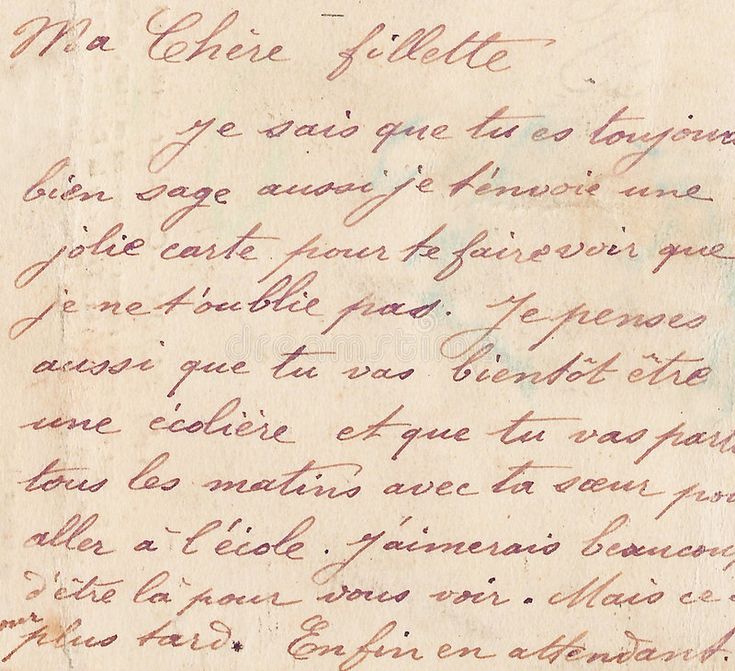 Ma Chère fillette
Je sais que tu es toujours
bien sage aussi je t'envoie une
jolie carte pour te faire voir que
je ne t'oublie pas. Je penses
aussi que tu vas bientôt être
une écolière et que tu vas part
tous les matins avec ta sœur pou
aller à l'école. J'aimerais beaucoup
d'être là pour vous voir. Mais ce
our plus tard. Enfin en attendant.
dreamstime